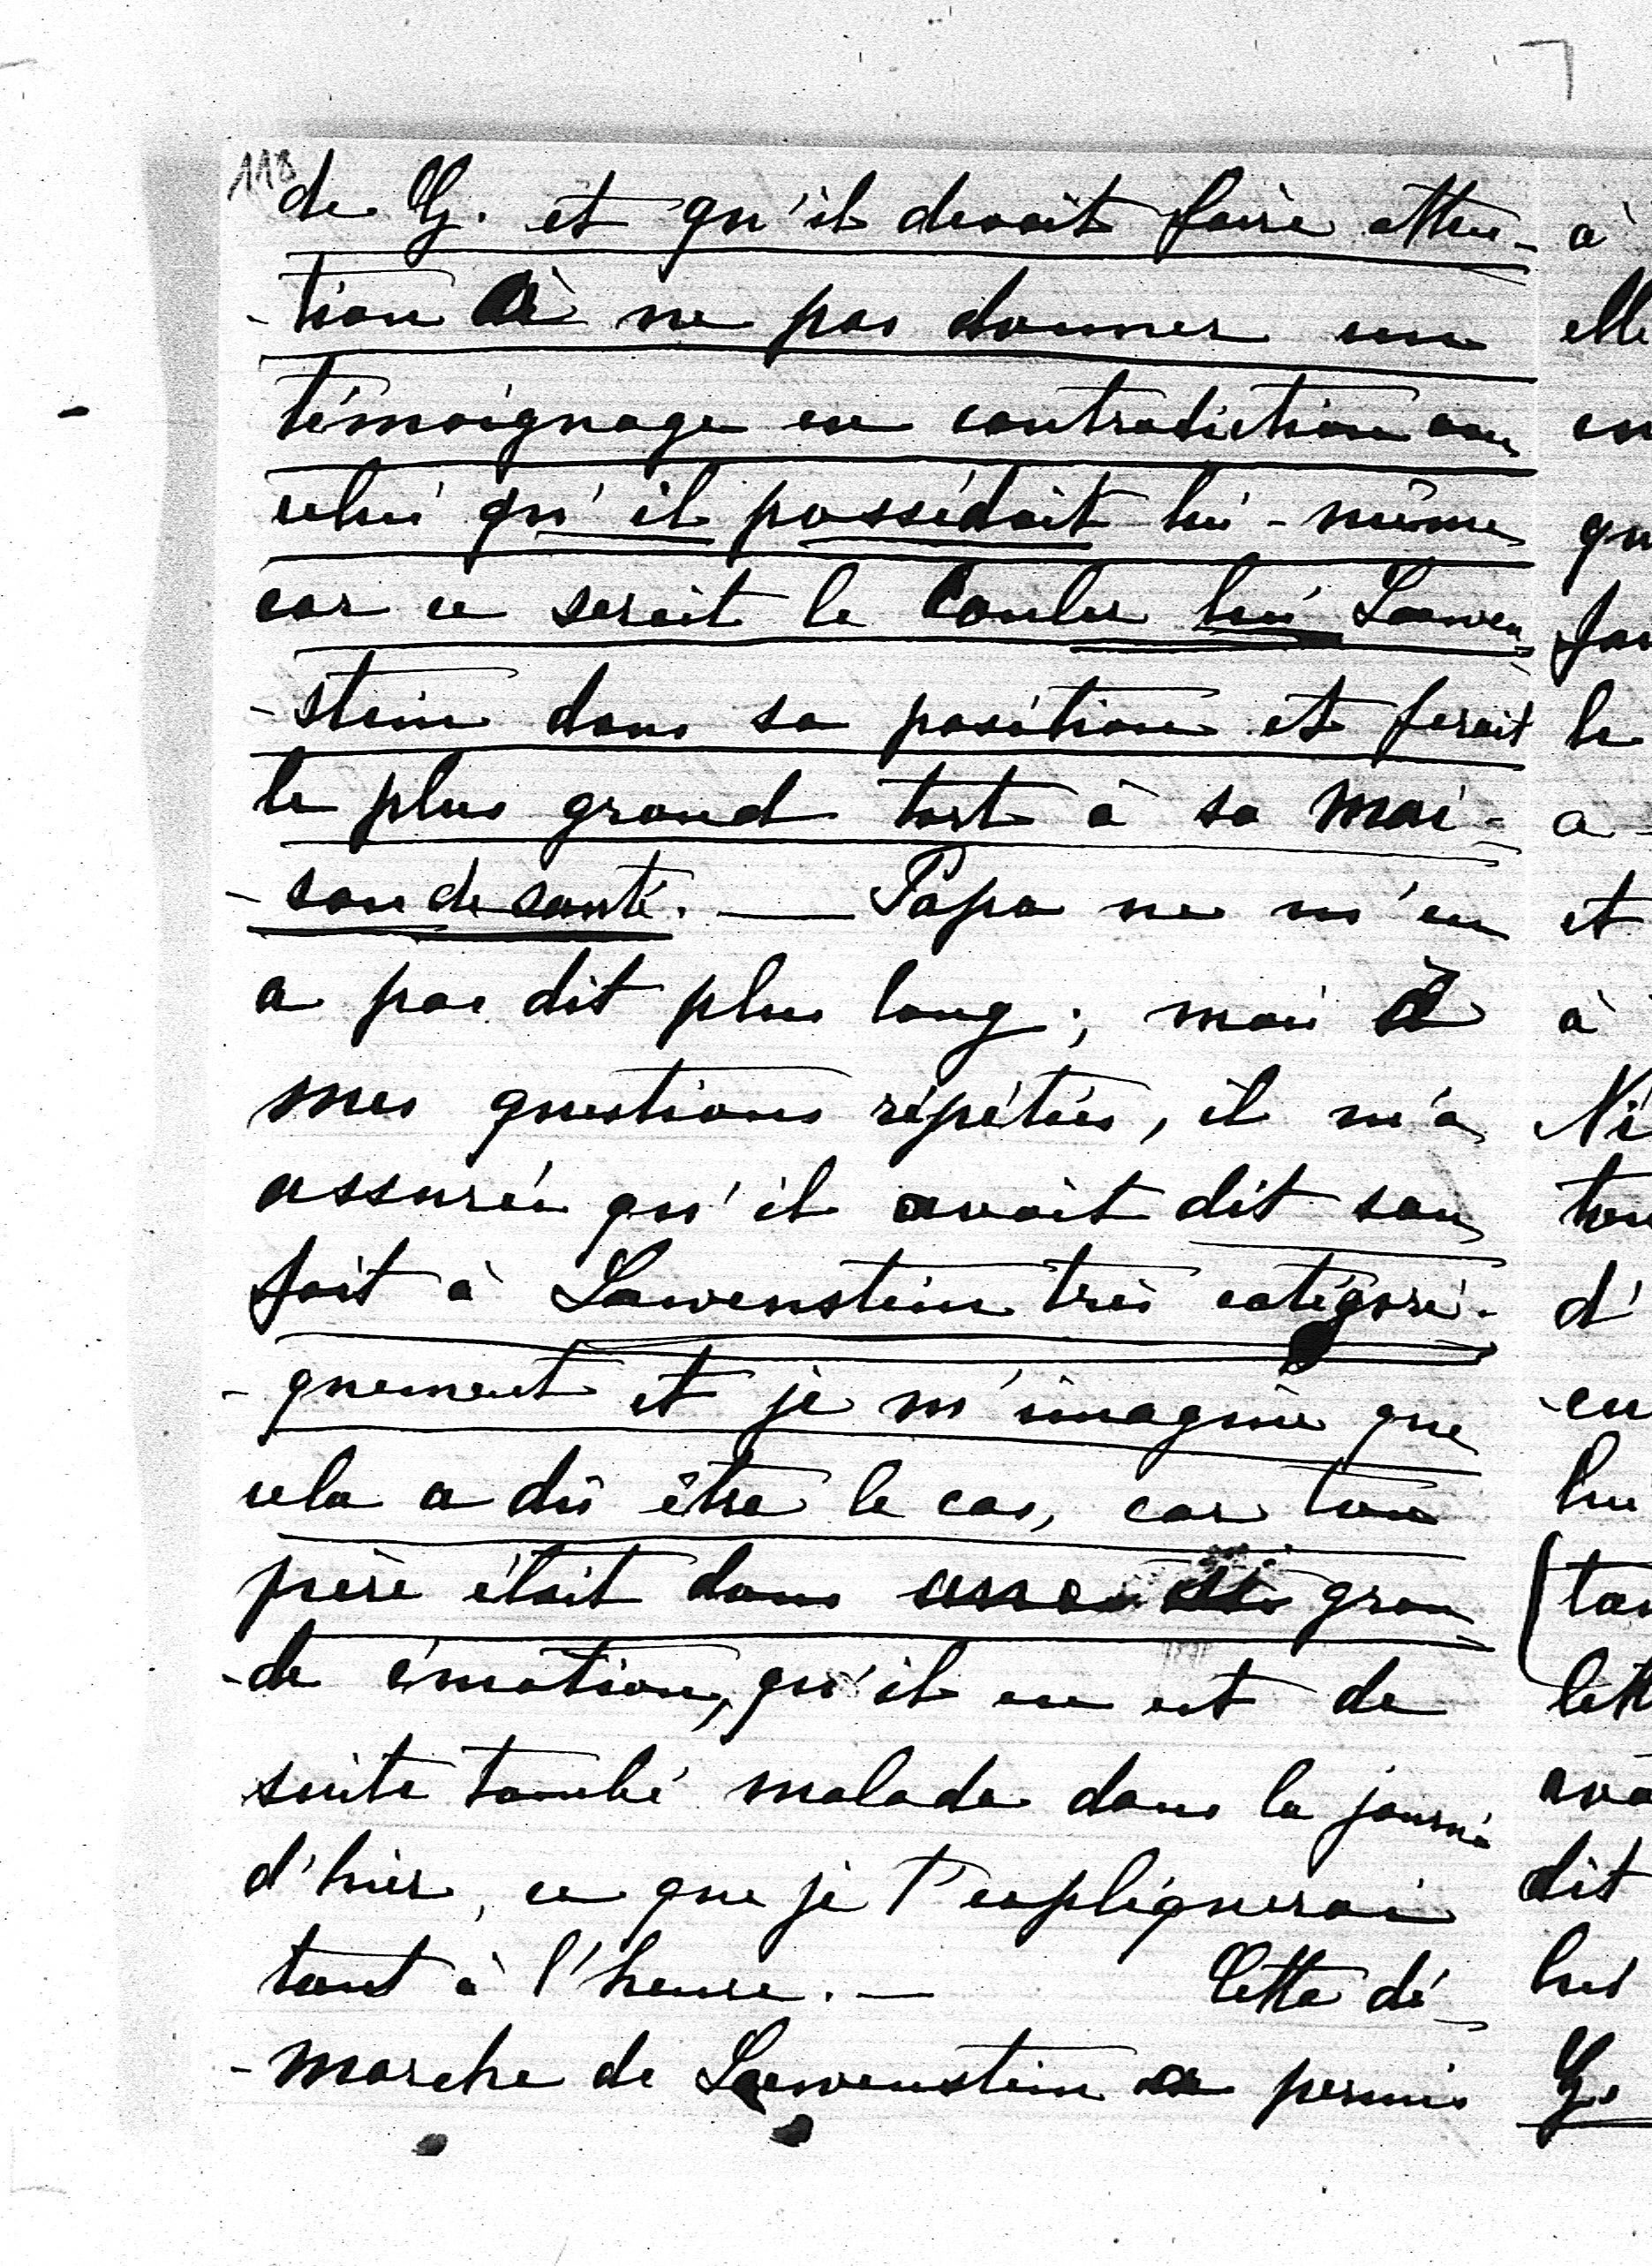 118
de G. et qu'il devait faire atten-
-tion à ne pas donner un
témoignage en contradiction avec
celui qu'il possédait lui-même
car ce serait le couler lui Lœwen-
-stein dans sa position et ferait
le plus grand tort à sa mai-
-son de santé. — Papa ne m'en
a pas dit plus long ; mais à
mes questions répétées, il m'a
assurée qu'il avait dit son
fait à Lœwenstein très catégori-
-quement et je m'imagine que
cela a dû être le cas, car ton
père était dans gran-
-de émotion, qu'il en est de
suite tombé malade dans la journée
d'hier, ce que je t'expliquerai
tout à l'heure. — Cette dé-
-marche de Lœwenstein a permis
à
elle
en
qu
le
a
et
à
d'
-en
lett
dit
lui
G.